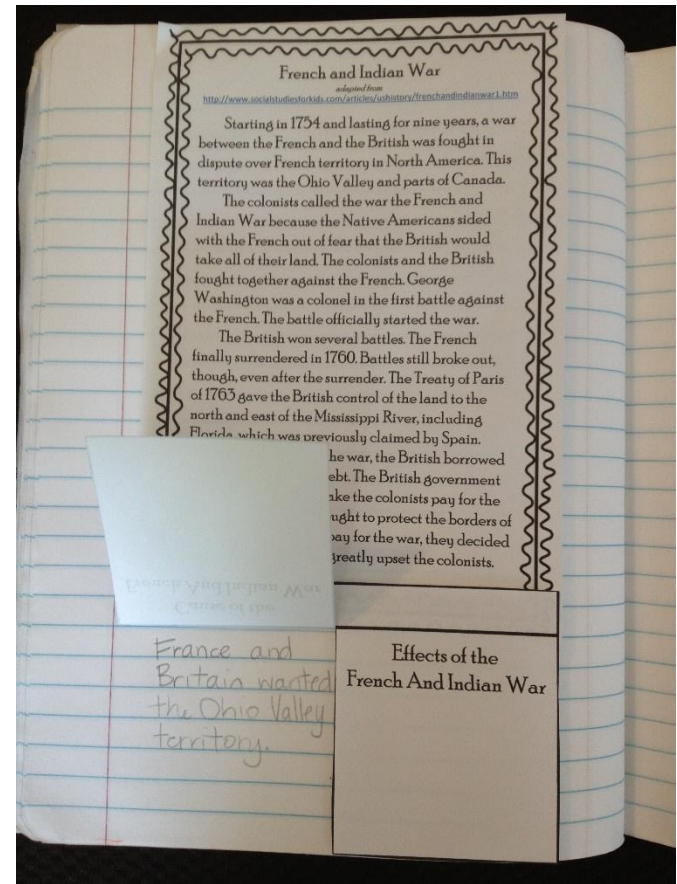 French and Indian War
adapted from
http://www.socialstudiesforkids.com/articles/ushistory/frenchandindianwar1.htm
Starting in 1754 and lasting for nine years, a war
between the French and the British was fought in
dispute over French territory in North America. This
territory was the Ohio Valley and parts of Canada.
The colonists called the war the French and
Indian War because the Native Americans sided
with the French out of fear that the British would
take all of their land. The colonists and the British
fought together against the French. George
Washington was a colonel in the first battle against
the French. The battle officially started the war.
The British won several battles. The French
finally surrendered in 1760. Battles still broke out,
though, even after the surrender. The Treaty of Paris
of 1763 gave the British control of the land to the
north and east of the Mississippi River, including
Florida, which was previously claimed by Spain.
he war, the British borrowed
ebt. The British government
ake the colonists pay for the
ught to protect the borders of
pay for the war, they decided
greatly upset the colonists.
Cause of the
French And Indian War
France and
Britain wanted
the Ohio Valley
territory.
Effects of the
French And Indian War